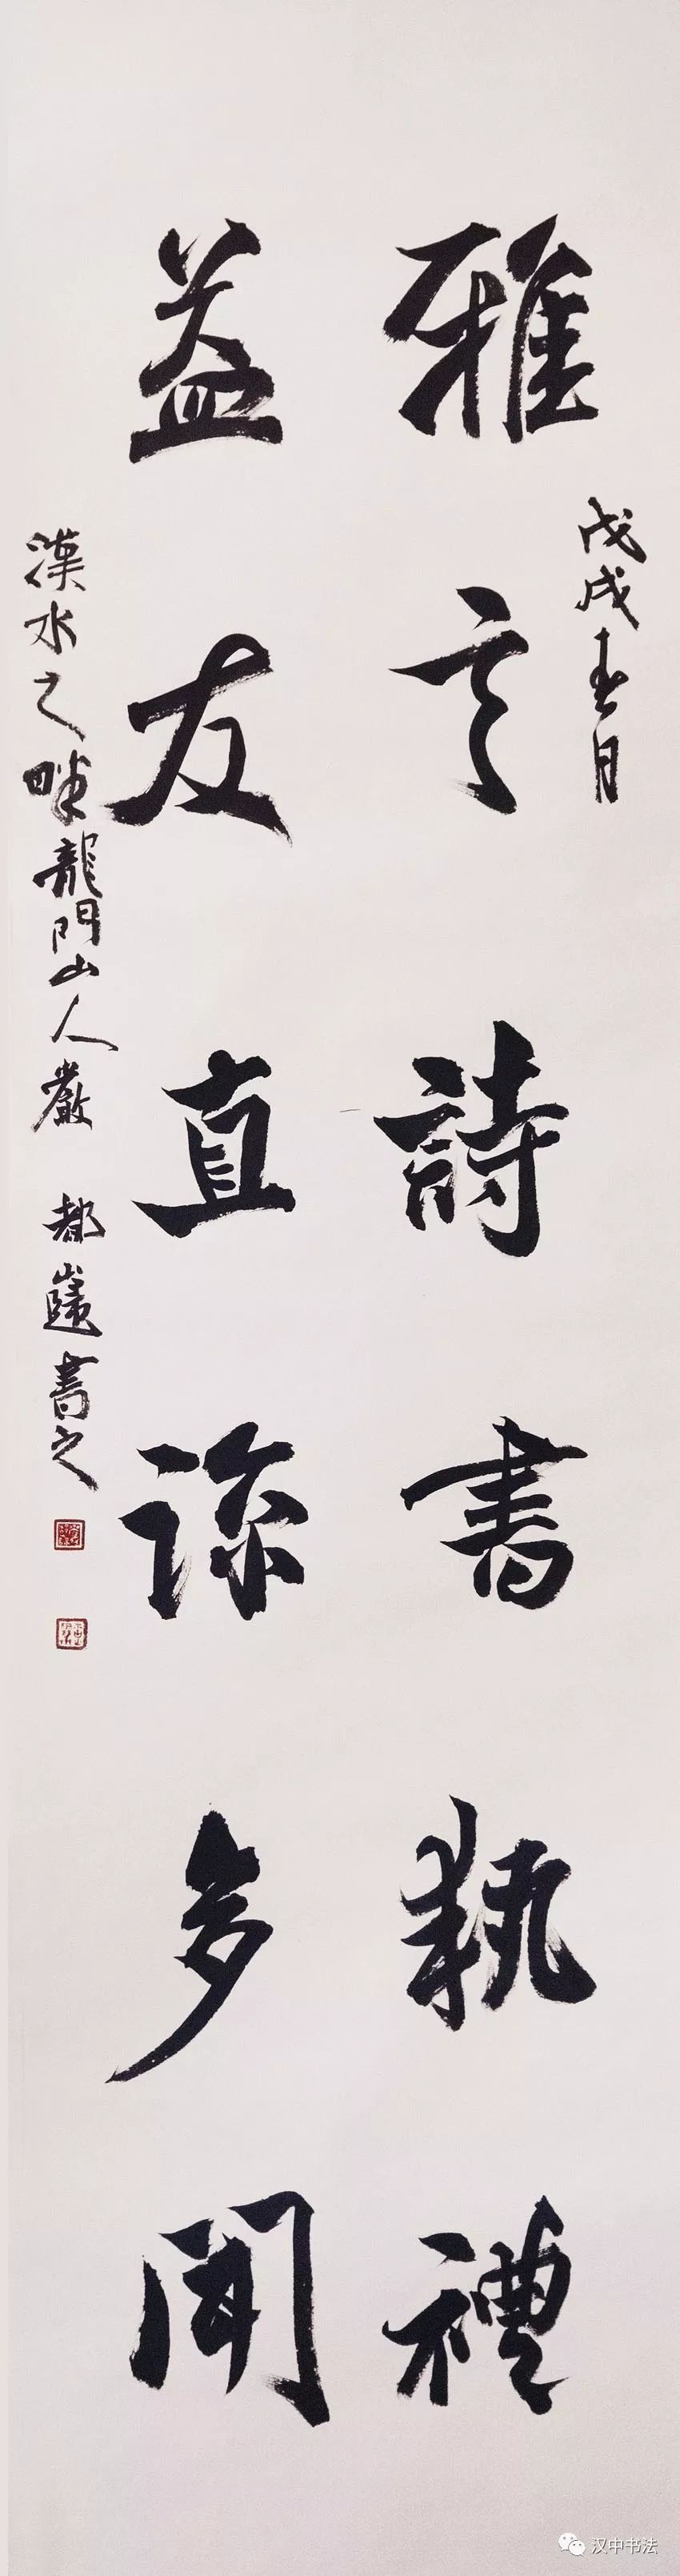 戊戌春月
雅言詩書執禮
益友直諒多聞
漢水之畔龍門山人嚴 都書之
汉中书法